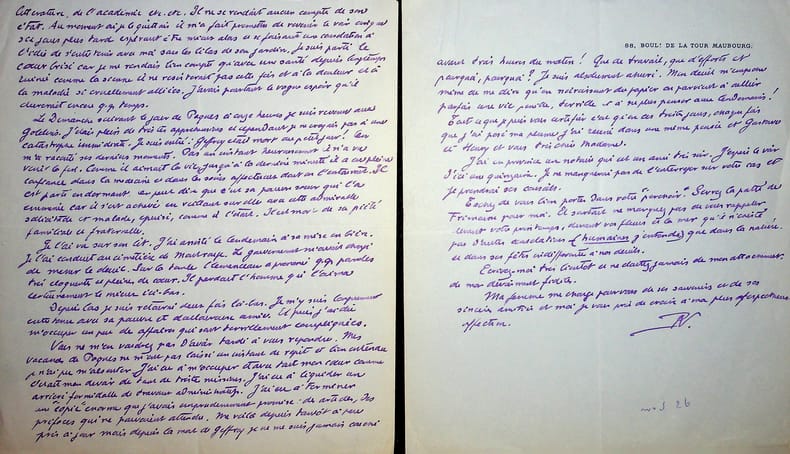 littérature, de l'académie etc. etc. Il ne se rendait aucun compte de son
état. Au moment où je le quittais il m'a fait promettre de revenir le voir cinq ou
six jours plus tard espérant être mieux alors et se faisant une consolation à
l'idée de s'entretenir avec moi sous les lilas de son jardin. Je suis parti le
cœur brisé car je me rendais bien compte qu'avec une santé depuis longtemps
ruiné comme la sienne il ne résisterait pas cette fois et à la douleur et à
la maladie si cruellement alliées. J'avais pourtant le vague espoir qu'il
durerait encore qq temps.
Le Dimanche suivant le jour de Pâques à onze heures je suis revenu aux
Gobelins. J'étais plein de tristes appréhensions et cependant je ne croyais pas à une
catastrophe immédiate. Je suis entré : Geffroy était mort au petit jour! On
m'a raconté ses derniers moments. Pas un instant heureusement il n'a vu
venir la fin. Comme il aimait la vie jusqu'à la dernière minute il a eu pleine
confiance dans la médecine et dans les soins affectueux dont on l'entourait. Il
est parti en dormant et l'on peut dire que c'est sa pauvre sœur qui l'a
emmené car il s'est achevé en veillant sur elle avec cette admirable
sollicitude et malade, épuisé, comme il l'était. Il est mort de sa piété
familiale et fraternelle.
Je l'ai vu sur son lit. J'ai assisté le lendemain à sa mise en bière.
Je l'ai conduit au cimetière de Montrouge. Le gouvernement m'avait chargé
de mener le deuil. Sur la tombe Clemenceau a prononcé qq paroles
très éloquentes et pleines de cœur. Il perdait l'homme qui l'aima
certainement le mieux ici-bas.
Depuis lors je suis retourné deux fois là-bas. Je m'y suis longuement
entretenu avec sa pauvre et douloureuse amie. Et puis j'ai dû
m'occuper un peu de affaires qui sont terriblement compliquées.
Vous ne m'en voudrez pas d'avoir tardé à vous répondre. Mes
vacances de Pâques ne m'ont pas laissé un instant de répit et bien entendu
je n'ai pu m'absenter. J'ai eu à m'occuper et avec tout mon cœur comme
c'était mon devoir de tant de tristes missions. J'ai eu à liquider un
arriéré formidable de travail administratif. J'ai eu à terminer
une copie énorme que j'avais imprudemment promise : des articles, des
préfaces qui ne pouvaient attendre. Me voilà depuis tantôt à peu
près à jour mais depuis la mort de Geffroy je ne me suis jamais couché
88, BOULᴰ DE LA TOUR MAUBOURG.
avant trois heures du matin! Que de travail, que d'efforts et
pourquoi, pourquoi? Je suis absolument ahuri. Mon deuil m'empêche
même de me dire qu'en noircissant du papier on parvient à oublier
parfois une vie pénible, terrible et à ne plus penser aux lendemains!
Tout ce que je puis vous certifier c'est qu'en ces tristes jours, chaque fois
que j'ai posé ma plume j'ai réuni dans une même pensée et Gustave
et Henry et vous très chère Madame.
J'ai en province un notaire qui est un ami très sûr. J'espère le voir
d'ici une quinzaine. Je ne manquerai pas de l'interroger sur votre cas et
je prendrai ses conseils.
Tâchez de vous bien porter dans votre "percheoir". Serrez la patte de
Frimousse pour moi. Et surtout ne manquez pas de vous rappeler
devant votre printemps, devant vos fleurs et la mer qu'il n'existe
pas d'autres consolations (humaines j'entends) que dans la nature
et dans ses fêtes indifférentes à nos deuils.
Ecrivez-moi très bientôt et ne doutez jamais de mon attachement,
de mon dévouement fidèle.
Ma femme me charge pour vous de ses souvenirs et de ses
sincère amitiés et moi je vous prie de croire à ma plus respectueuse
affection.
26